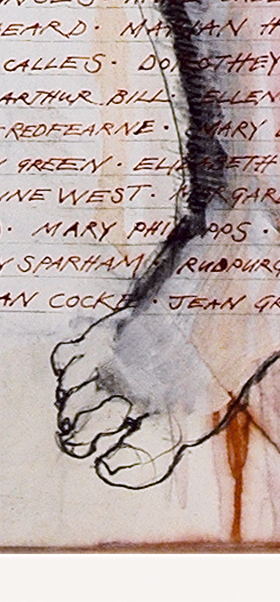 EARD · MARIAN H
CALLES · DOROTHEY
ARTHUR BILL · ELLEN
REDFEARNE · MARY
GREEN · ELIZABETH
INE WEST · MARGAR
· MARY PHILIPPS ·
Y SPARHAM · RUDPURC
AN COCKE · JEAN GR